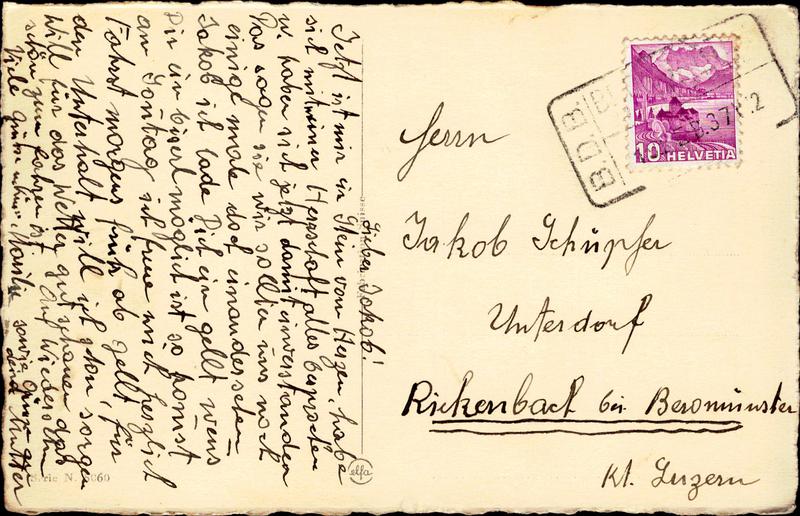 Lieber Jakob!
Jetzt ist mir ein Stein vom Herzen, habe
sich mit meiner Herrschaft alles besprochen
u. haben sich jetzt damit einverstanden
Das sagen sie wir sollten uns noch
einige male doch einander sehen
Jakob ich lade Dich ein gellt wens
Dir ein bisert möglich ist so komst
an Sontag ich freue mich herzlich
Fahrst morgens früh ab gellt, für
den Unterhalt will ich schon sorgen
will für das Wetter gut schauen das
schön zum fahren ist. Auf Wiedersehn
Viele Grüsse
sowie Grüsse an
deine Mutter
Serie N. 3060
elfa
Herrn
Jakob Schüpfer
Unterdorf
Rickenbach bei Beromünster
Kt. Luzern
10 HELVETIA
BDB
37